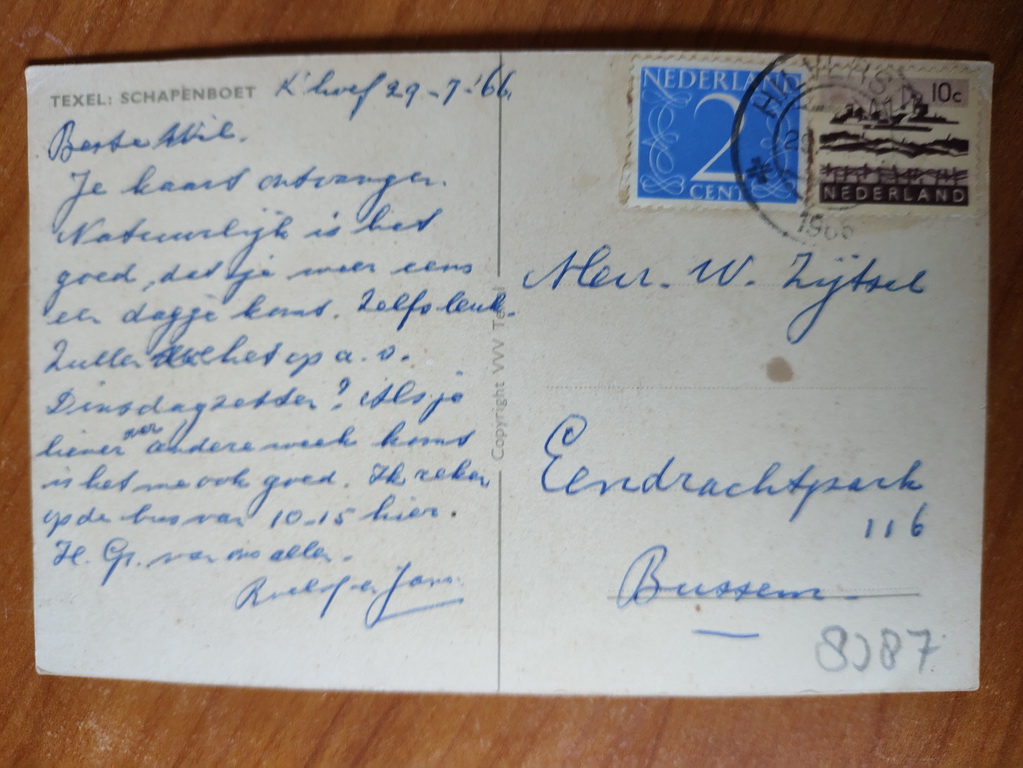 TEXEL: SCHAPENBOET
K'hoef 29-7-'66
Beste Wil.
Je kaart ontvangen.
Natuurlijk is het
goed, dat je weer eens
een dagje komt. Zelfs leuk.
Zullen we het op a.s.
Dinsdag zetten? Als je
liever
andere week komt
is het me ook goed. Ik reken
op de bus van 10-15 hier.
H. Gr. van ons allen.
Roelof en
Copyright VVV Texel
NEDERLAND
2
CENT
1966
10c
NEDERLAND
Mevr. W. Zijtsel
Eendrachtpark
116
Bussem
8087